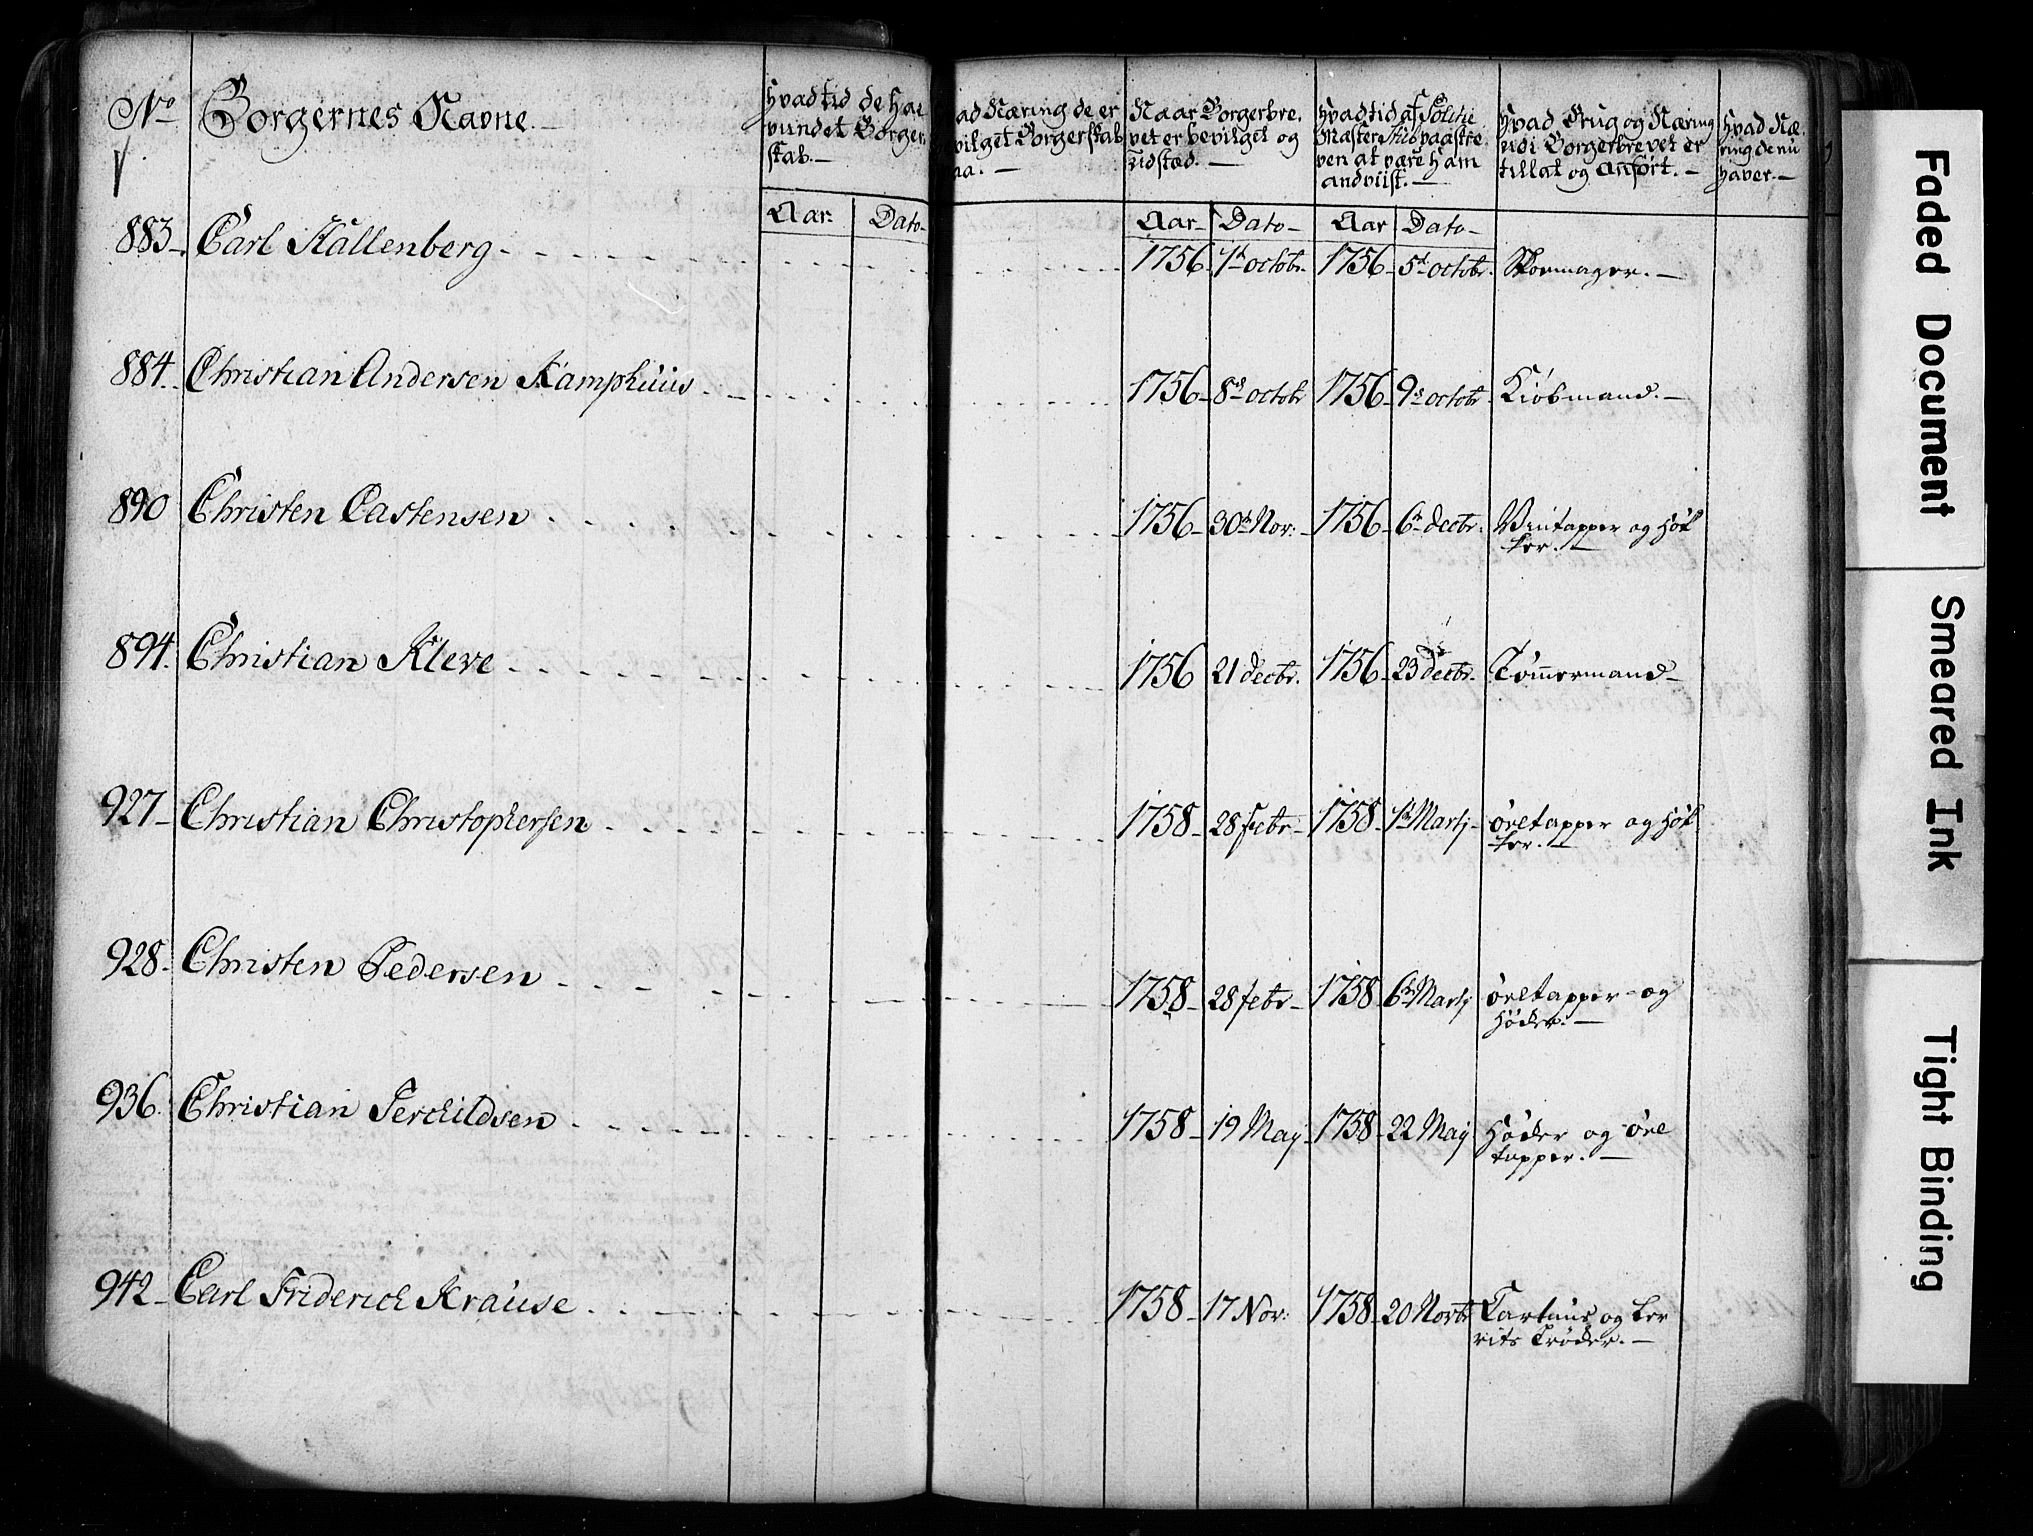 No Borgernes Navne.
Hvad tid de har
vundet Borger
skab.
ad Næring de er
vilget Borgerskab
aa.
Naar Borgerbre,
vet er bevilget og
udstæd.
Hvad tid af Politie
Master
ven at være ham
andviist.
Hvad Brug og Næring
udi Borgerbrevet er
tillat og Anført.
Hvad Næ,
ring de nu
haver.
Aar Dato Aar Dato Aar Dato
883 Carl Hallenberg 1756 1d octobr. 1756 5d octobr. Skoemager.
884. Christian Andersen Kamphuus 1756 8d octobr 1756 9d octobr Kiøbmand.
890 Christen Castensen 1756 30d Nov: 1756 6d decbr. Viintapper og Høk
ker.
894. Christian Kleve 1756 21 decbr. 1756 23 decbr. Tømmermand
927 Christian Christophersen 1758 28 Febr 1758 1d Martj øretapper og Høk
ker.
928. Christen Pedersen 1758 28 febr 1758 6d Martj øretapper og
Høcker.
936. Christian Terchildsen 1758 19 Maij 1758 22 Maij Høcker og øre
tapper.
942 Carl Friderich Krause 1758 17 Nov: 1758 20 Novbr og
Faded Document
Smeared Ink
Tight Binding